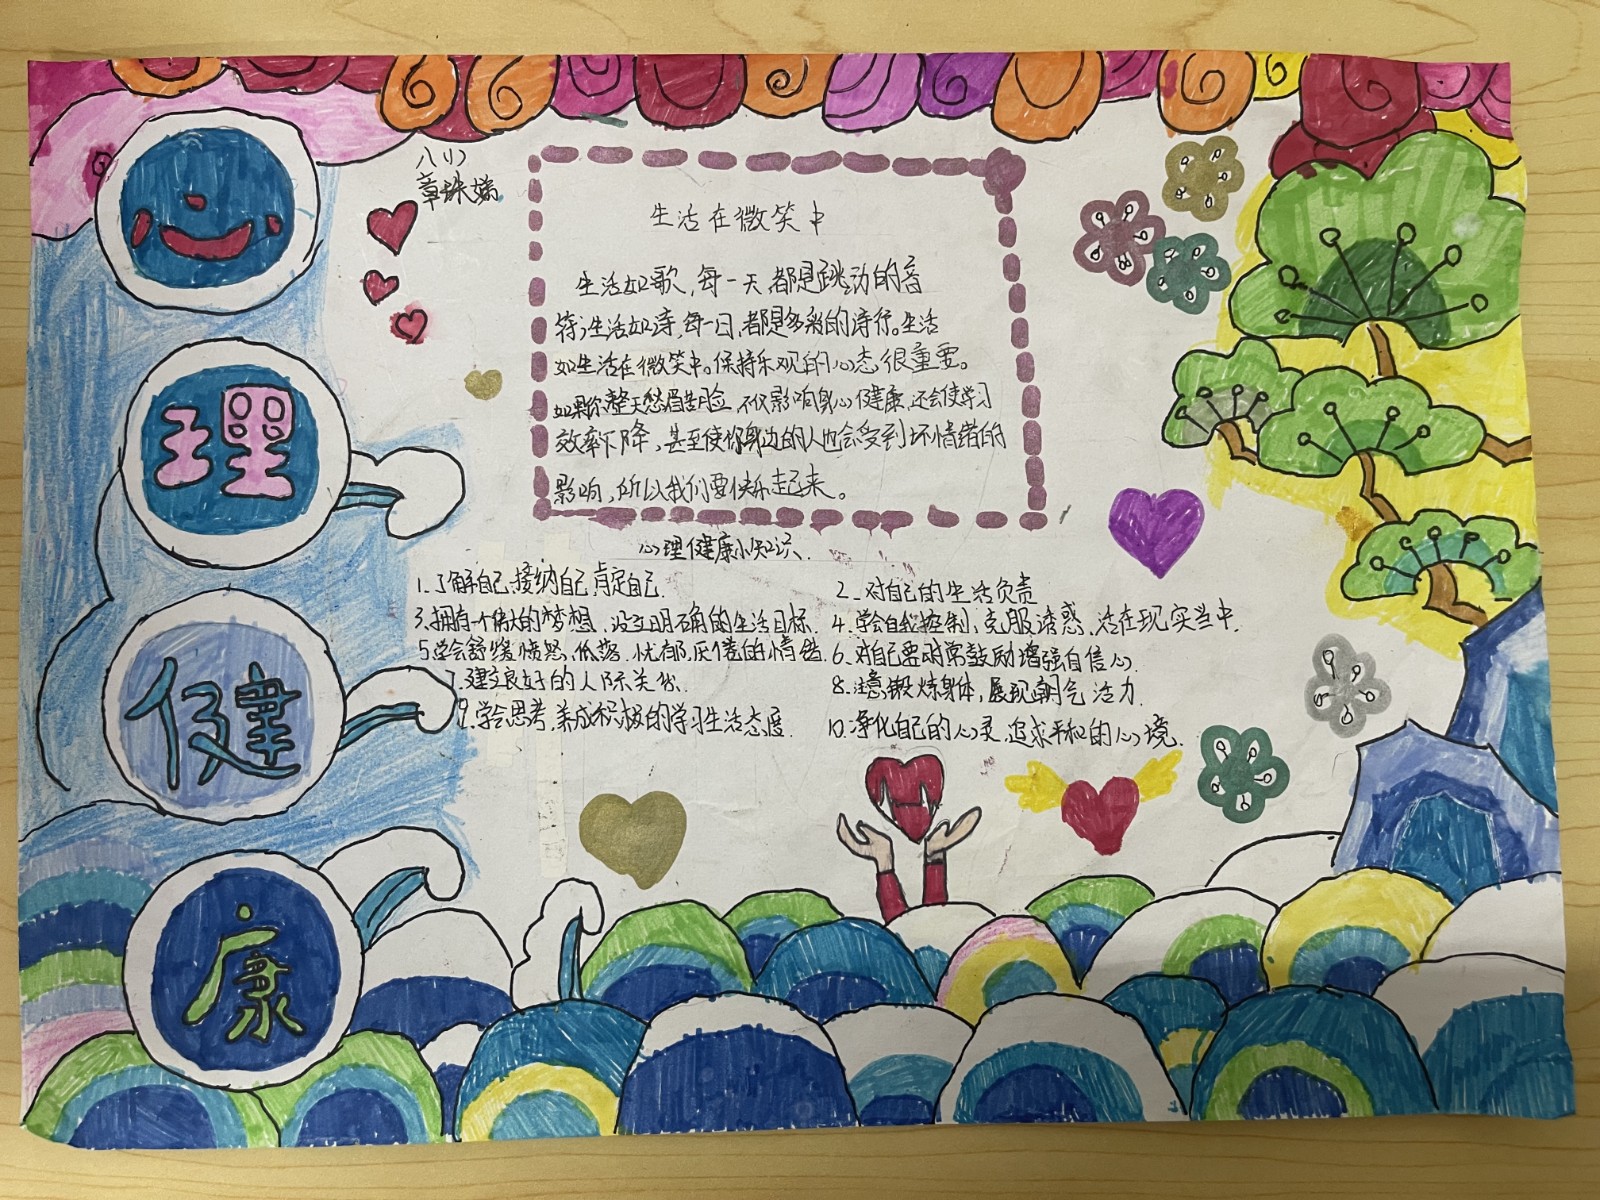 心
理
健
康
八(1)
章珠娣
生活在微笑中
生活如歌,每一天都是跳动的音
符;生活如诗,每一日,都是多彩的诗行。生活
如生活在微笑中。保持乐观的心态很重要。
如果你整天愁眉苦脸,不仅影响身心健康,还会使学习
效率下降,甚至使你身边的人也会受到坏情绪的
影响,所以我们要快乐起来。
心理健康小知识.
1.了解自己,接纳自己,肯定自己.
2.对自己的生活负责
3.拥有一个伟大的梦想、设立明确的生活目标.
4.学会自我控制,克服诱惑、活在现实当中.
5学会舒缓愤怒、低落.忧郁.厌倦的情绪.
6.对自己要时常鼓励增强自信心.
7.建立良好的人际关系.
8.注意锻炼身体,展现朝气活力.
9.学会思考,养成积极的学习生活态度.
10.净化自己的心灵.追求平和的心境.